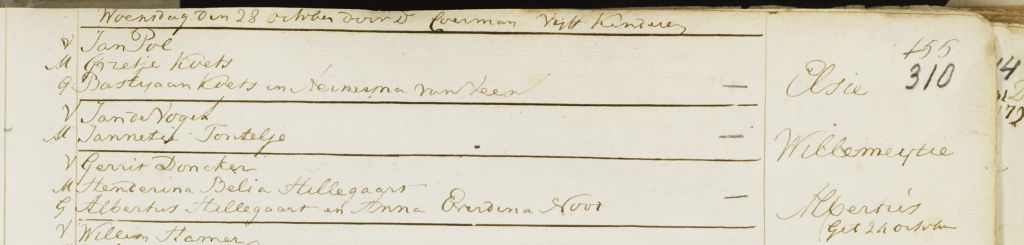 Woensdag den 28 october door D Coerman Vijff Kinderen
V Jan Pol
M Grietje Koets
G Bastiaan Koets en van Veen
Elsie
155
310
V Jan de Vogel
M Jannetie Tontelje
Willemeytie
V Gerrit Doncker
M Henderina Belia Hillegaart
G Albertus Hillegaart en Anna Everdina Noot
Albertus
Geb 24 october
V Willem Hamer